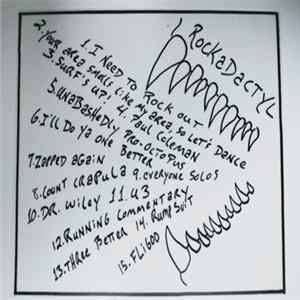 RockaDactyL
1. I NEED TO ROCK OUT
2. Your area smells like my area, so Let's Dance
3. SURF'S UP! 4. Paul Coleman
5. UNABASHEDLY PRO-OCTOPUS
6. I'll Do ya one Better
7. Zapped again
8. Count CRAPULA 9. everyone Solos
10. DR. Wiley 11. U3
12. RUNNING Commentary
13. THREE Better 14. Rump Suit
15. FLIGOD